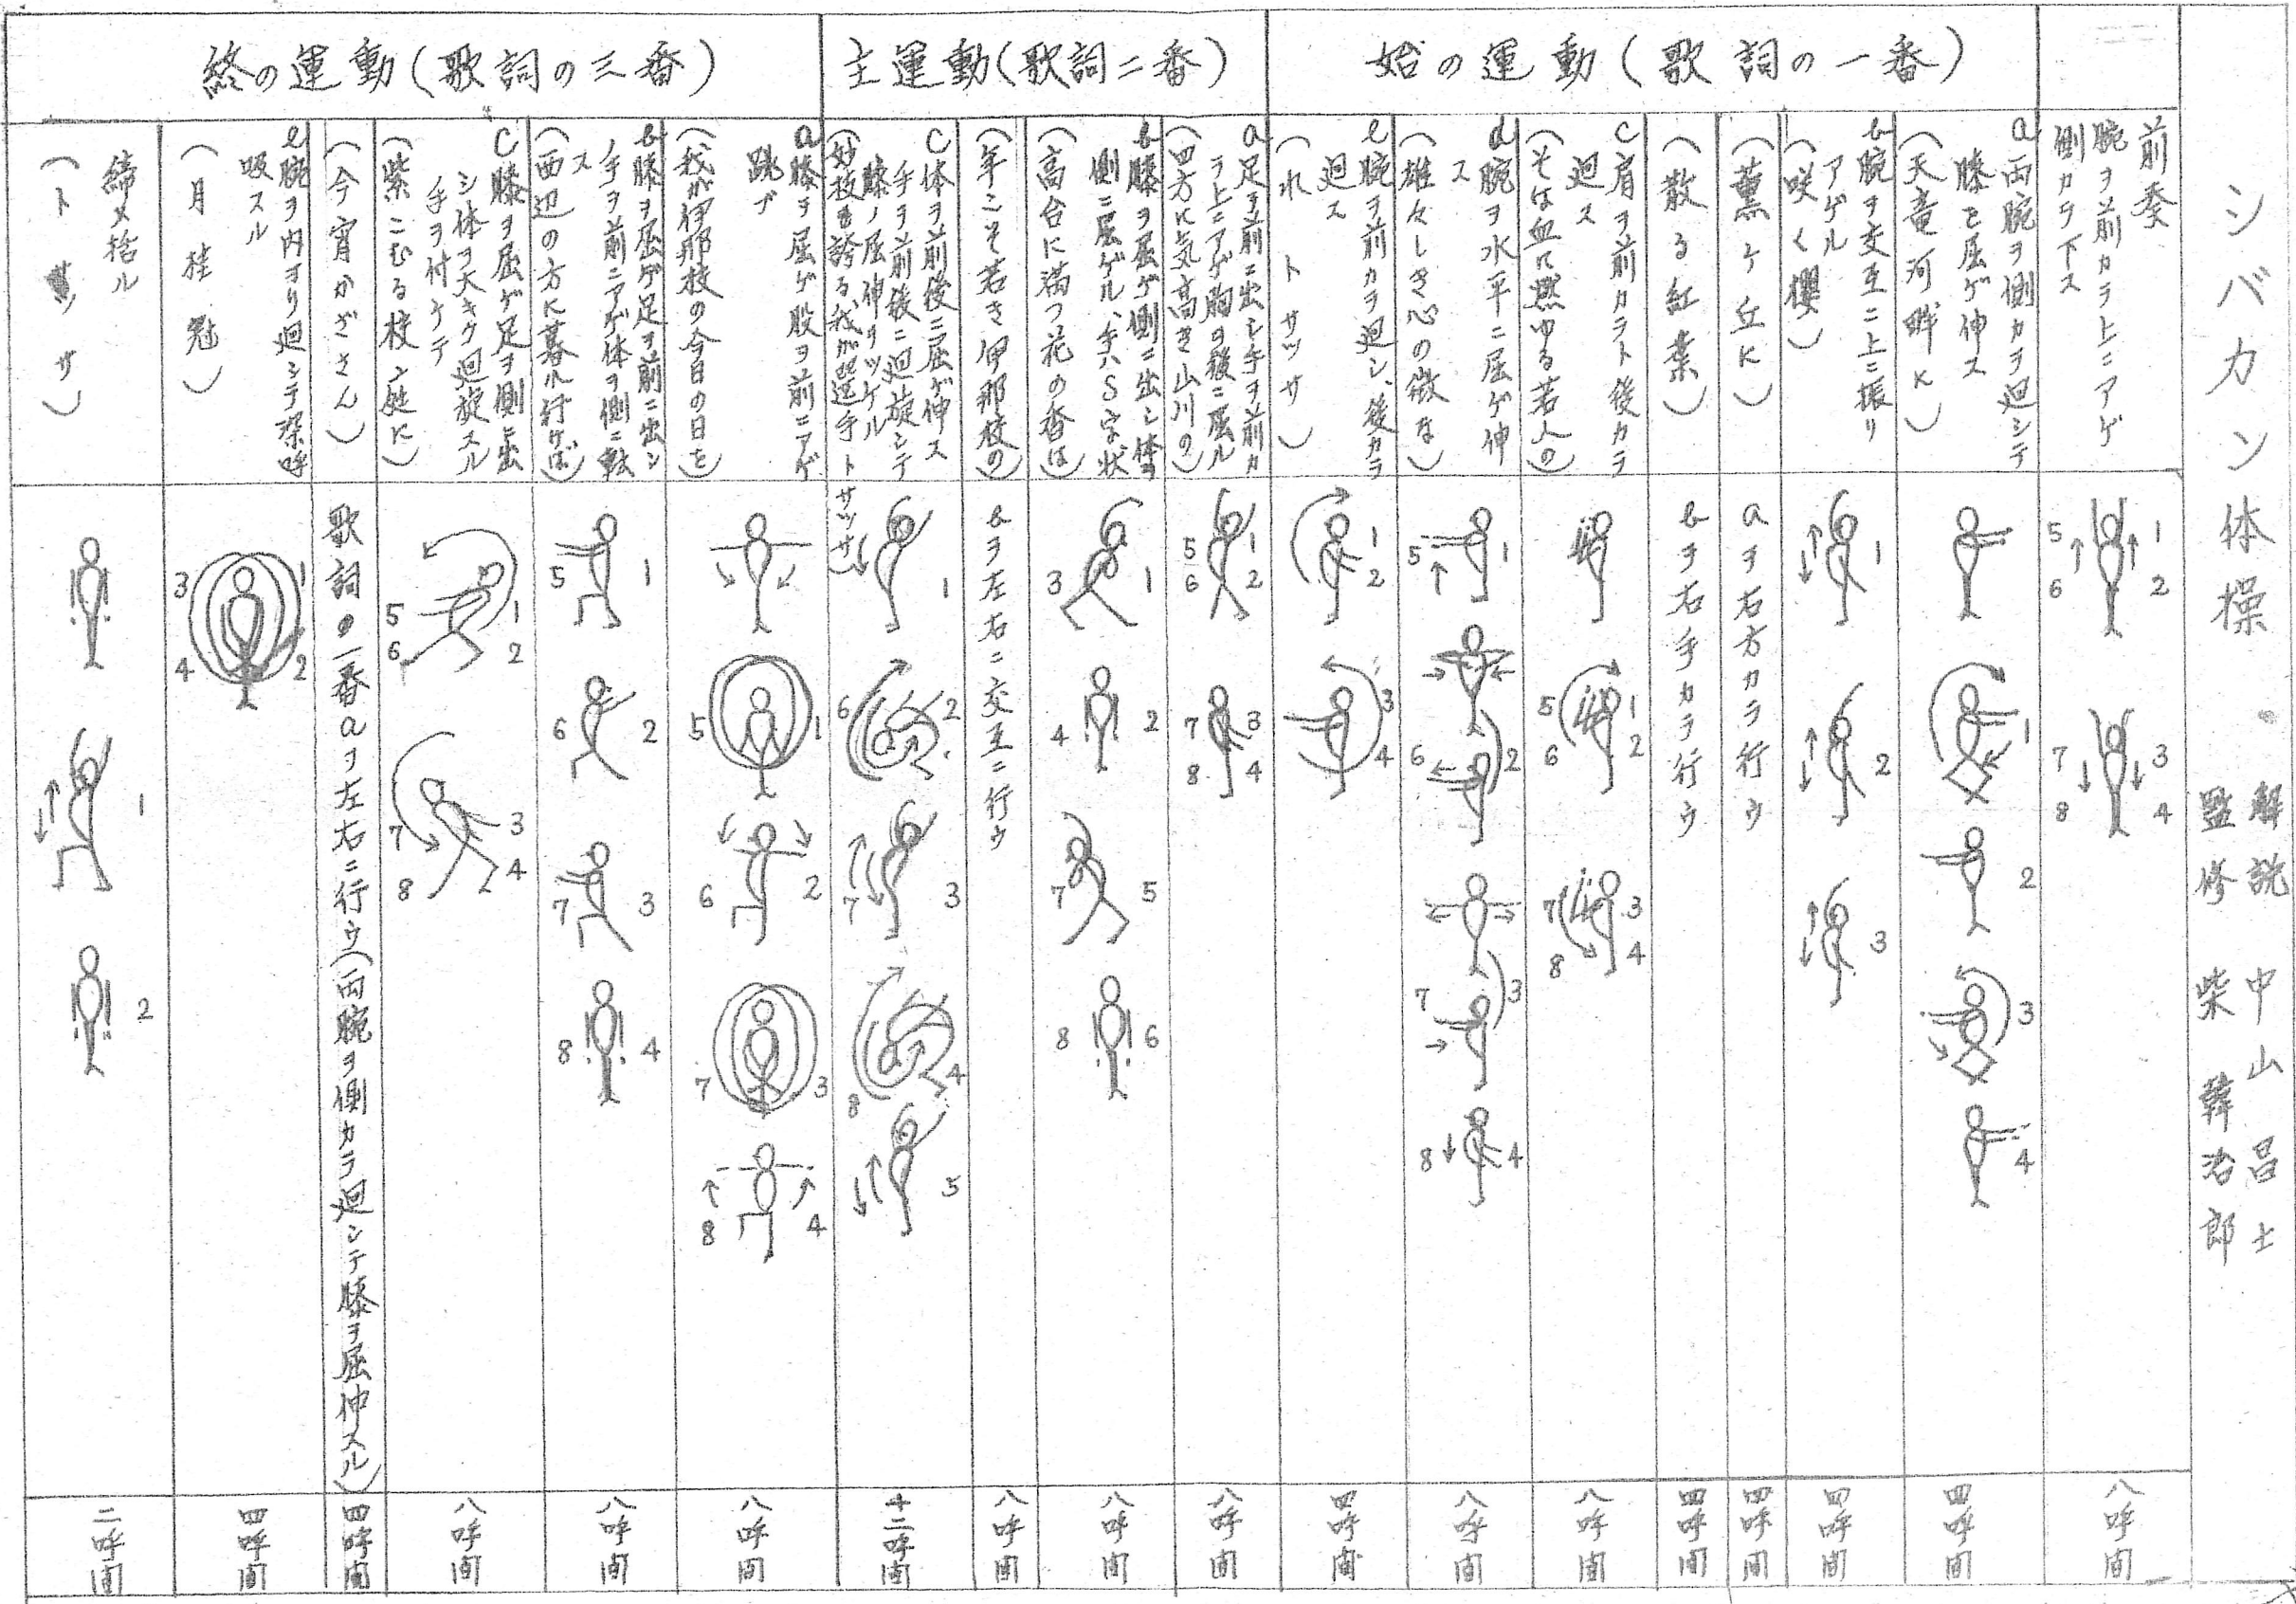 シバカン体操
解説 中山呂士
監修 柴 韓治郎
前奏
腕ヲ前カラ上ニアゲ
側カラ下ス
5 1
6 2
7 3
8 4
八呼間
始の運動(歌詞の一番)
a 両腕ヲ側カラ廻シテ
膝を屈ゲ伸ス
(天竜河畔に)
1
2
3
4
四呼間
b 腕ヲ交互ニ上ニ振リ
アゲル
(咲く櫻)
1
2
3
四呼間
(薫ヶ丘に)
aヲ右方カラ行ウ
四呼間
(散る紅葉)
bヲ右手カラ行ウ
四呼間
c 肩ヲ前カラト後カラ
廻ス
(そは血に燃ゆる若人の)
5 1
6 2
7 3
8 4
八呼間
d 腕ヲ水平ニ屈ゲ伸
ス
(雄々しき心の徴な)
5 1
6 2
7 3
8 4
八呼間
e 腕ヲ前カラ廻シ、後カラ
廻ス
(れ トサッサ)
1
2
3
4
四呼間
主運動(歌詞二番)
a 足ヲ前ニ出シ手ヲ前カ
ラ上ニアゲ胸ヲ後ニ屈ル
(四方に気高き山川の)
5 1
6 2
7 3
8 4
八呼間
b 膝ヲ屈ゲ側ニ出シ体ヲ
側ニ屈ゲル、手ハS字状
(高台に満つ花の香は)
3 1
4 2
7 5
8 6
八呼間
(年こそ若き伊那校の)
bヲ左右ニ交互ニ行ウ
八呼間
c 体ヲ前後ニ屈ゲ伸ス
手ヲ前後ニ廻旋シテ
膝ノ屈伸ヲツケル
(妙技を誇る我が選手トサッサ)
1
6 2
7 3
8 4
5
十二呼間
終の運動(歌詞の三番)
a 膝ヲ屈ゲ股ヲ前ニアゲ
跳ブ
(我が伊那校の今日の日を)
5 1
6 2
7 3
8 4
八呼間
b 膝ヲ屈ゲ足ヲ前ニ出シ
手ヲ前ニアゲ体ヲ側ニ転
ス
(西辺の方に暮れ行けば)
5 1
6 2
7 3
8 4
八呼間
c 膝ヲ屈ゲ足ヲ側ニ出
シ体ヲ大キク廻旋スル
手ヲ付ケテ
(紫こむる校庭に)
5 1
6 2
7 3
8 4
八呼間
(今宵かざさん)
歌詞の一番aヲ左右ニ行ウ(両腕ヲ側カラ廻シテ膝ヲ屈伸スル)
四呼間
e 腕ヲ内ヨリ廻シテ深呼
吸スル
(月桂冠)
3 1
4 2
四呼間
締メ括ル
(トサッサ)
1
2
二呼間